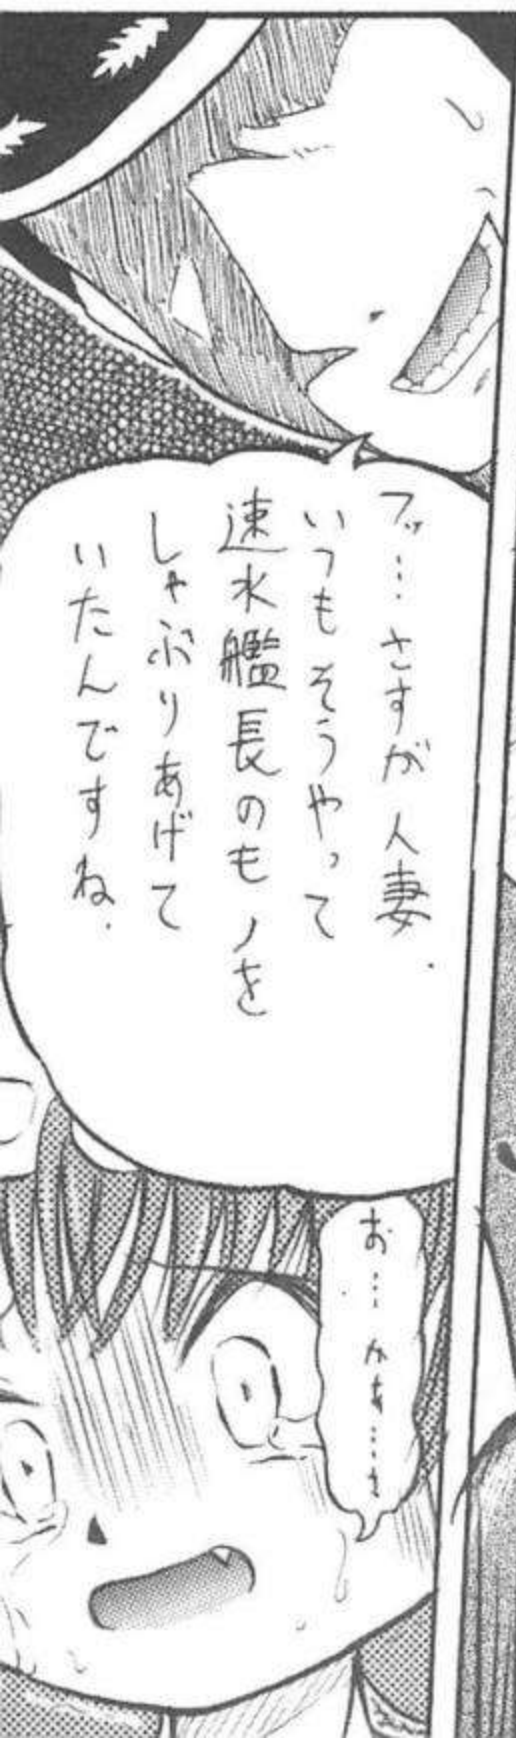 フッ…さすが人妻.
いつもそうやって
速水艦長のモノを
しゃぶりあげて
いたんですね.
お…かあ…さ